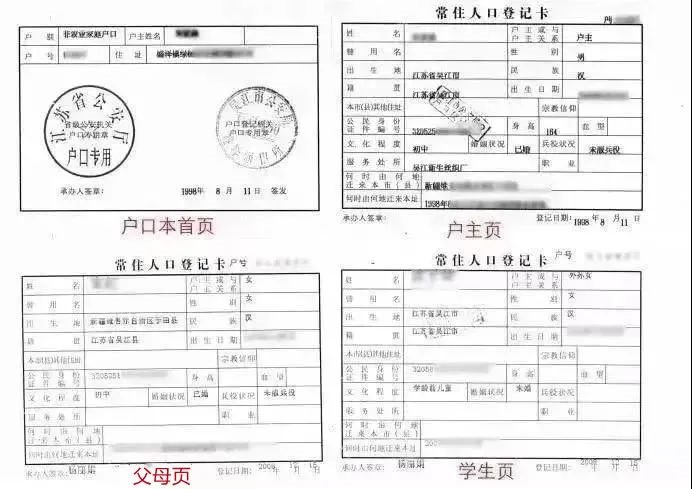 户 别 非农业家庭户口 户主姓名
户 号 住 址
江苏省公安厅
省级公安机关
户口专用章
户口专用
吴江市公安局
户口登记机关
户口专用章
承办人签章： 1998年 8 月 11日 签发
户口本首页
常住人口登记卡
姓 名 户主或与户主关系 户主
曾 用 名 性 别 男
出 生 地 江苏省吴江市 民 族 汉
籍 贯 江苏省吴江市 出生日期
本市(县)其他住址 宗教信仰
公民身份证件编号 320525 身 高 164 血 型
文化程度 初中 婚姻状况 已婚 兵役状况 未服兵役
服 务 处 所 职 业
何时由何地迁来本市(县)
何时由何地迁来本址 1998年8
承办人签章： 登记日期：1998 年 8 月 11日
户主页
常住人口登记卡 户号
姓 名 户主或与户主关系 女
曾 用 名 性 别 女
出 生 地 民 族 汉
籍 贯 江苏省吴江县 出生日期
本市(县)其他住址 宗教信仰
公民身份证件编号 3205251 身 高 血 型
文化程度 初中 婚姻状况 已婚 兵役状况 未服兵役
服 务 处 所 职 业
何时由何地迁来本市(县)
何时由何地迁来本址
承办人签章： 登记日期：2008 12 16
父母页
常住人口登记卡 户号
姓 名 户主或与户主关系 外孙女
曾 用 名 性 别 女
出 生 地 江苏省吴江市 民 族 汉
籍 贯 江苏省吴江市 出生日期
本市(县)其他住址 宗教信仰
公民身份证件编号 32058 身 高 血 型
文化程度 学龄前儿童 婚姻状况 未婚 兵役状况
服 务 处 所 职 业
何时由何地迁来本市(县)
何时由何地迁来本址 200
承办人签章： 登记日期：2008 12 16
学生页